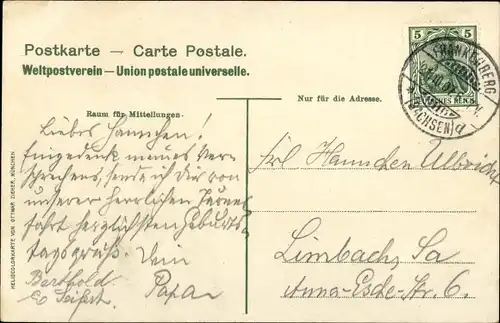 Postkarte — Carte Postale.
Weltpostverein — Union postale universelle.
Raum für Mitteilungen.
Nur für die Adresse.
5 5
DEUTSCHES REICH
FRANKENBERG
(SACHSEN)
Liebes Hannchen!
Eingedenk meines Ver-
sprechens, sende ich Dir von
unserer herrlichen Turner
fahrt herzlichsten Geburts
tagsgruß. Dein
Papa
Berthold
E. Seifert.
Frl Hannchen Ulbricht
Limbach, Sa
Anna-Esche-Str. 6.
HELIOCOLORKARTE VON OTTMAR ZIEHER, MÜNCHEN.